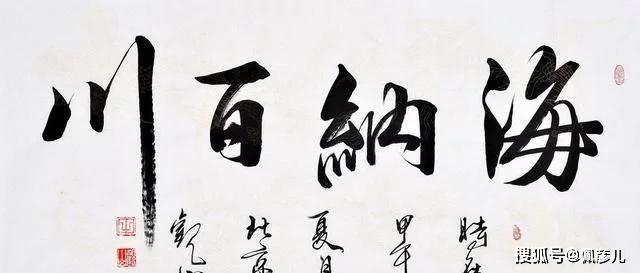 海納百川
時在
甲午
夏月
北京
觀
搜狐号@佩彦儿